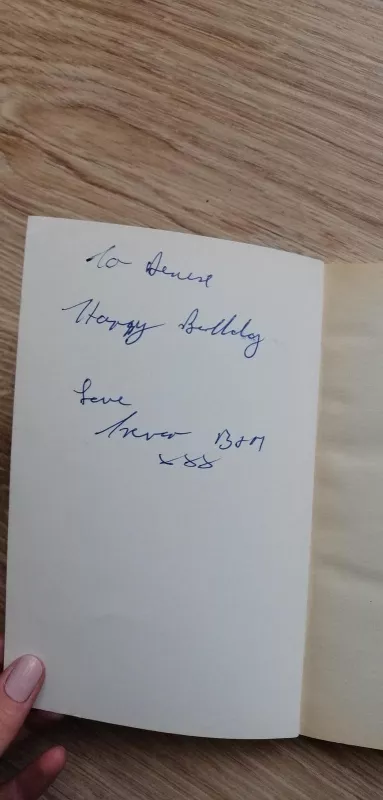 To Denise
Happy Birthday
Love
Trevor B+M
xxx